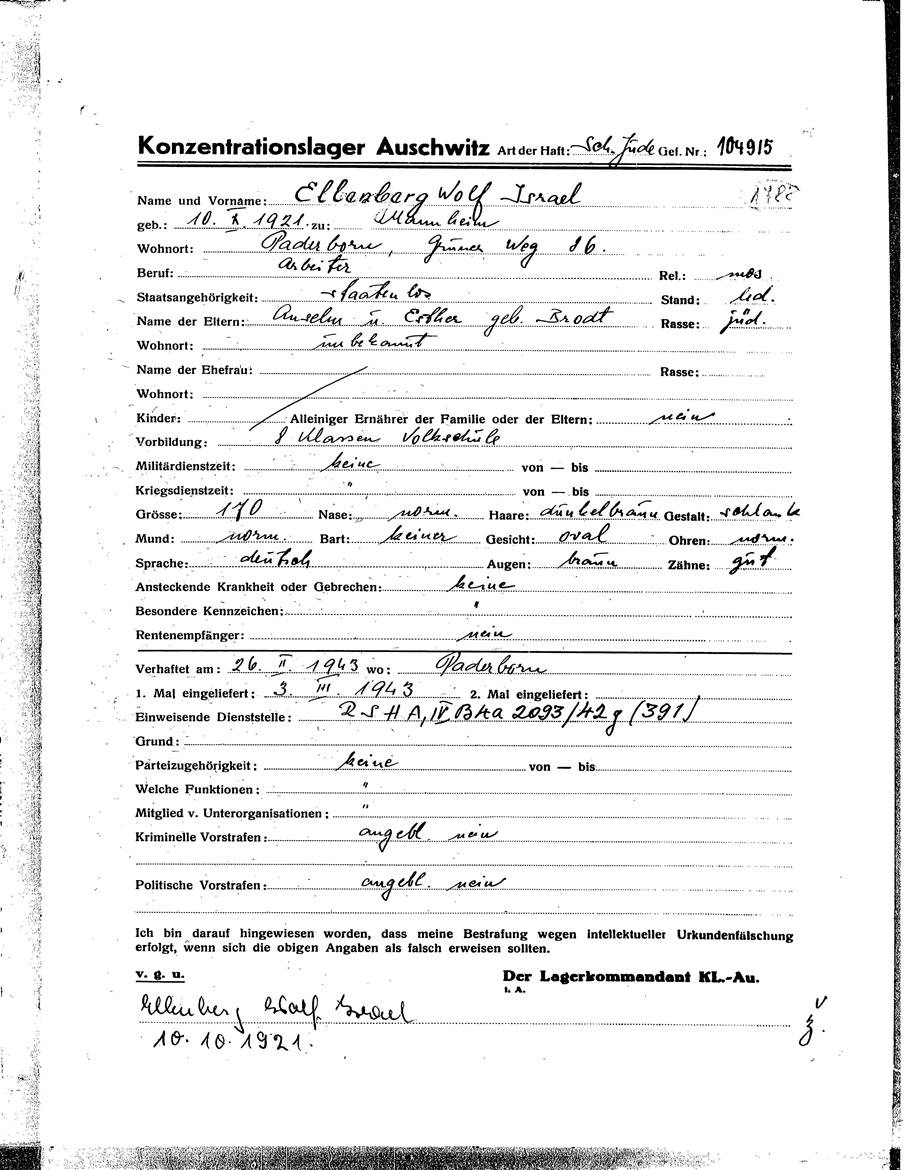 Konzentrationslager Auschwitz Art der Haft: Sch. Jude Gef. Nr.: 104915
Name und Vorname: Ellenberg Wolf Israel
geb.: 10. X. 1921. zu: Mannheim
Wohnort: Paderborn, Grüner Weg 86.
Beruf: Arbeiter Rel.: mos.
Staatsangehörigkeit: staatenlos Stand: led.
Name der Eltern: Anselm u. Esther geb. Brodt Rasse: jüd.
Wohnort: unbekannt
Name der Ehefrau: Rasse:
Wohnort:
Kinder: Alleiniger Ernährer der Familie oder der Eltern: nein
Vorbildung: 8 Klassen Volkschule
Militärdienstzeit: keine von — bis
Kriegsdienstzeit: " von — bis
Grösse: 170 Nase: norm. Haare: dunkelbraun Gestalt: schlank
Mund: norm. Bart: keiner Gesicht: oval Ohren: norm.
Sprache: deutsch Augen: braun Zähne: gut
Ansteckende Krankheit oder Gebrechen: keine
Besondere Kennzeichen: "
Rentenempfänger: nein
Verhaftet am: 26. II. 1943 wo: Paderborn
1. Mal eingeliefert: 3. III. 1943 2. Mal eingeliefert:
Einweisende Dienststelle: RSHA, IV B4a 2093/42g (391)
Grund:
Parteizugehörigkeit: keine von — bis
Welche Funktionen: "
Mitglied v. Unterorganisationen: "
Kriminelle Vorstrafen: angebl. nein
Politische Vorstrafen: angebl. nein
Ich bin darauf hingewiesen worden, dass meine Bestrafung wegen intellektueller Urkundenfälschung
erfolgt, wenn sich die obigen Angaben als falsch erweisen sollten.
v. g. u. Der Lagerkommandant KL.-Au.
i. A.
Ellenberg Wolf Israel
10. 10. 1921.